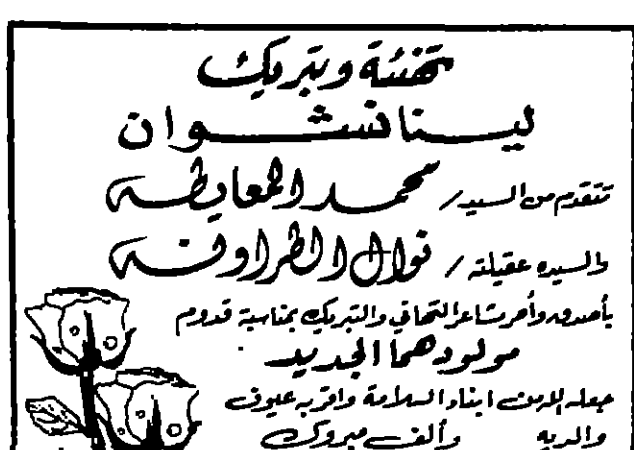 تهنئة وتبريك
لينا نشوان
تتقدم من السيد / محمد المعايطه
والسيده عقيلته / نوال الطراونه
بأصدق وأحر مشاعر التهاني والتبريك بمناسبة قدوم
مولودهما الجديد
جعله الله من ابناء السلامة واقر به عيون
والديه وألف مبروك